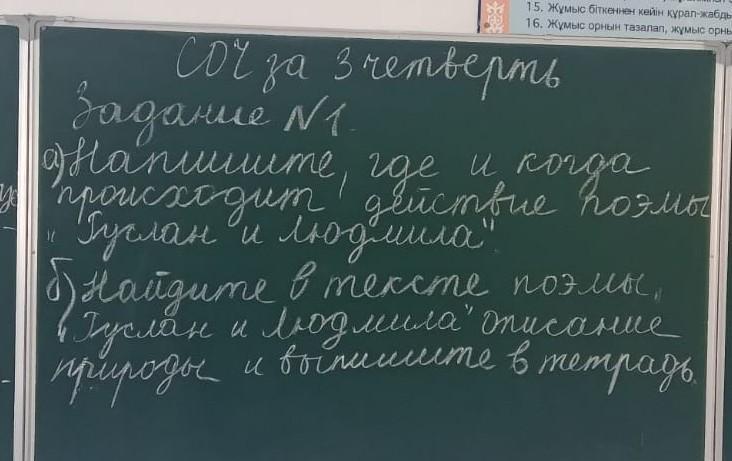 15. Жұмыс біткеннен кейін құрал-жабды
16. Жұмыс орнын тазалап, жұмыс орны
СОЧ за 3 четверть
Задание N1.
а) Напишите, где и когда
происходит действие поэмы
"Руслан и Людмила".
б) Найдите в тексте поэмы
"Руслан и Людмила" описание
природы и выпишите в тетрадь.